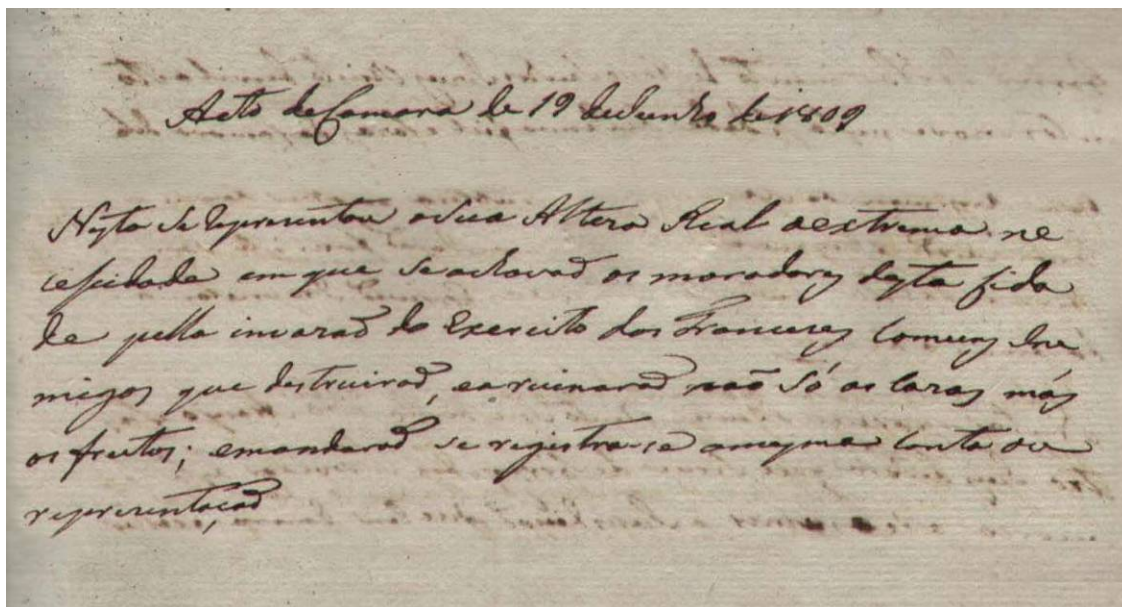 Acto de Camara de 19 de Junho de 1809
Nesta se Representou a Sua Alteza Real a extrema ne
cessidade em que se achavaõ os moradores desta Cida
de pella invazaõ do Exercito dos Francezes Comuns Ini
migos que destruiraõ, e aruinaraõ naõ só as Cazas mas
os frutos; e mandaraõ se registrasse a mesma Conta ou
reprezentaçaõ